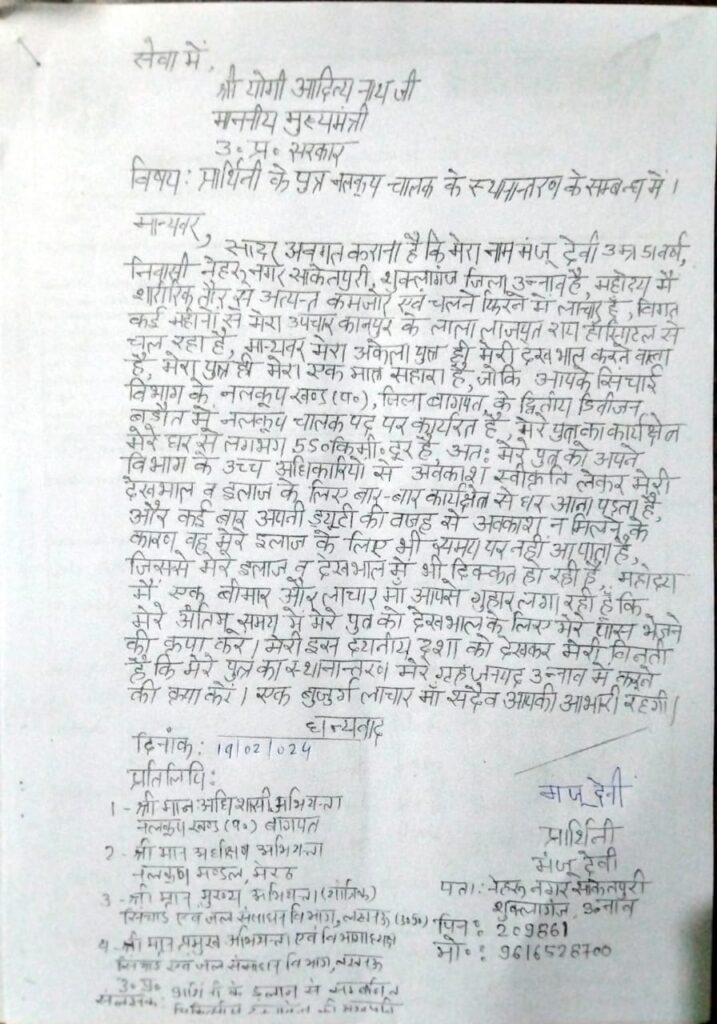 सेवा में,
श्री योगी आदित्य नाथ जी
माननीय मुख्यमंत्री
उ॰ प्र॰ सरकार
विषय: प्रार्थिनी के पुत्र नलकूप चालक के स्थानान्तरण के सम्बन्ध में।
मान्यवर,
सादर अवगत कराना है कि मेरा नाम मंजू देवी उम्र 51 वर्ष,
निवासी नेहरू नगर साकेतपुरी, शुक्लागंज जिला उन्नाव है, महोदय मैं
शारीरिक तौर से अत्यन्त कमजोर एवं चलने फिरने में लाचार है, विगत
कई महीनों से मेरा उपचार कानपुर के लाला लाजपत राय हॉस्पिटल से
चल रहा है, मान्यवर मेरा अकेला पुत्र ही मेरी देखभाल करने वाला
है, मेरा पुत्र ही मेरा एक मात्र सहारा है, जोकि आपके सिंचाई
विभाग के नलकूप खण्ड (प॰), जिला बागपत, के द्वितीय डिवीजन
बड़ौत में नलकूप चालक पद पर कार्यरत है, मेरे पुत्र का कार्यक्षेत्र
मेरे घर से लगभग 550 कि॰मी॰ दूर है, अतः मेरे पुत्र को अपने
विभाग के उच्च अधिकारियों से अवकाश स्वीकृति लेकर मेरी
देखभाल व इलाज के लिए बार-बार कार्यक्षेत्र से घर आना पड़ता है,
और कई बार अपनी ड्यूटी की वजह से अवकाश न मिलने के
कारण वह मेरे इलाज के लिए भी समय पर नहीं आ पाता है,
जिससे मेरे इलाज व देखभाल में भी दिक्कत हो रही है, महोदय
मैं एक बीमार और लाचार माँ आपसे गुहार लगा रही हूँ कि
मेरे अंतिम समय में मेरे पुत्र को देखभाल के लिए मेरे पास भेजने
की कृपा करें। मेरी इस दयनीय दशा को देखकर मेरी विनती
है कि मेरे पुत्र का स्थानान्तरण मेरे गृह जनपद उन्नाव में करने
की कृपा करें। एक बुजुर्ग लाचार माँ सदैव आपकी आभारी रहेगी।
धन्यवाद
दिनांक: 19/02/024
प्रतिलिपि:
1 - श्री मान अधिशासी अभियन्ता
नलकूप खण्ड (प॰) बागपत
2 - श्री मान अधीक्षण अभियन्ता
नलकूप मण्डल, मेरठ
3 - श्री मान मुख्य अभियन्ता (यांत्रिक)
सिंचाई एवं जल संसाधन विभाग, लखनऊ (उ॰प्र॰)
4 - श्री मान प्रमुख अभियन्ता एवं विभागाध्यक्ष
सिंचाई एवं जल संसाधन विभाग, लखनऊ
उ॰ प्र॰
संलग्नक: प्रार्थिनी के इलाज से सम्बन्धित
मंजू देवी
प्रार्थिनी
मंजू देवी
पता: नेहरू नगर साकेतपुरी
शुक्लागंज, उन्नाव
पिन: 209861
मो॰: 9616528700